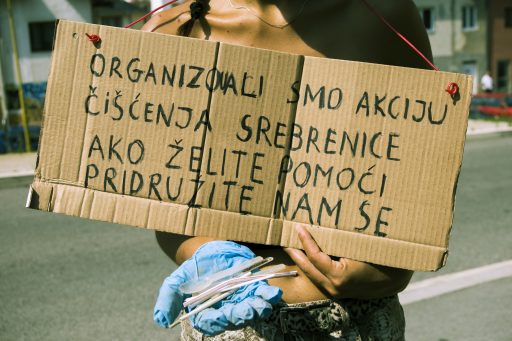 ORGANIZOVALI SMO AKCIJU
ČIŠĆENJA SREBRENICE
AKO ŽELITE POMOĆI
PRIDRUŽITE NAM SE